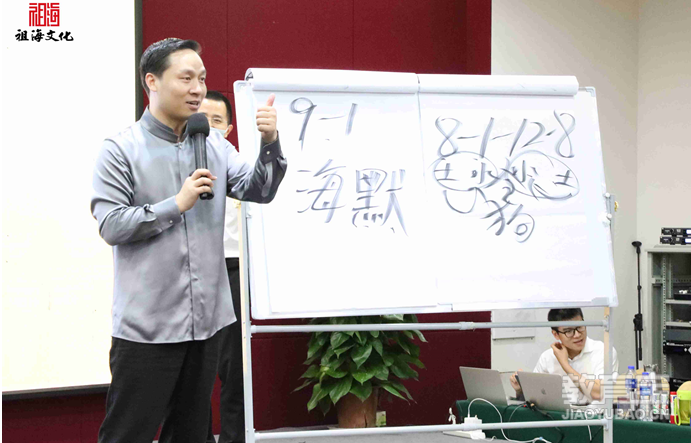 祖海
祖海文化
9-1
海默
8-1-12-8
土水
土
狗
教育宝
JIAOYUBAO.CN